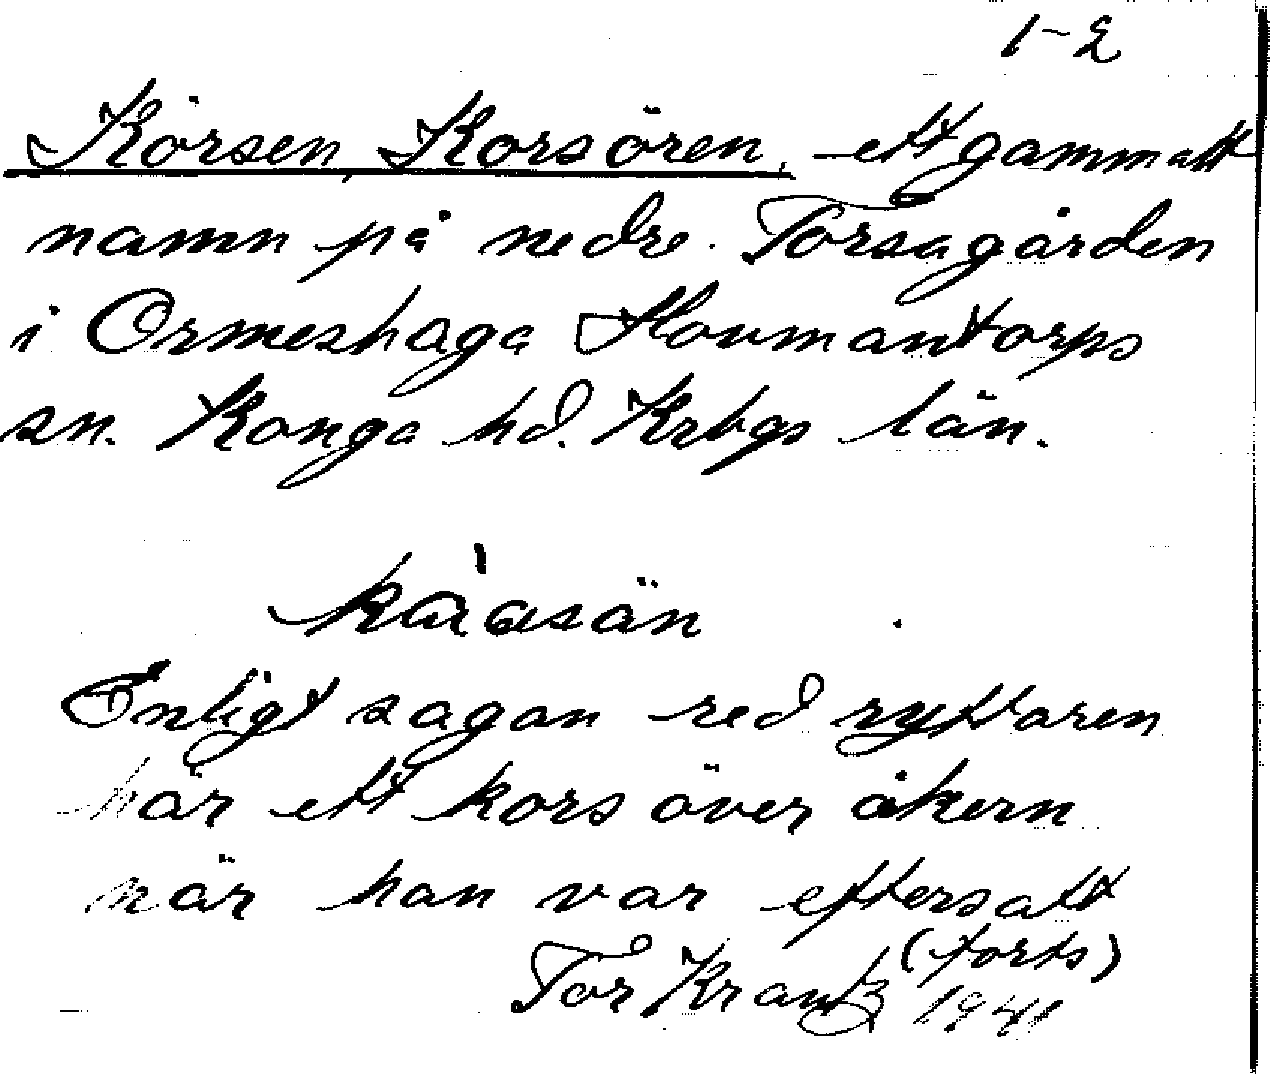 1-2
Körsen, Korsören, ett gammalt
namn på nedre Torsagården
i Ormeshaga Hovmantorps
sn. Konga hd. Krbgs län.
Enligt sagan red ryttaren
här ett kors över åkern
när han var eftersatt
(forts)
Tor Krantz 1941